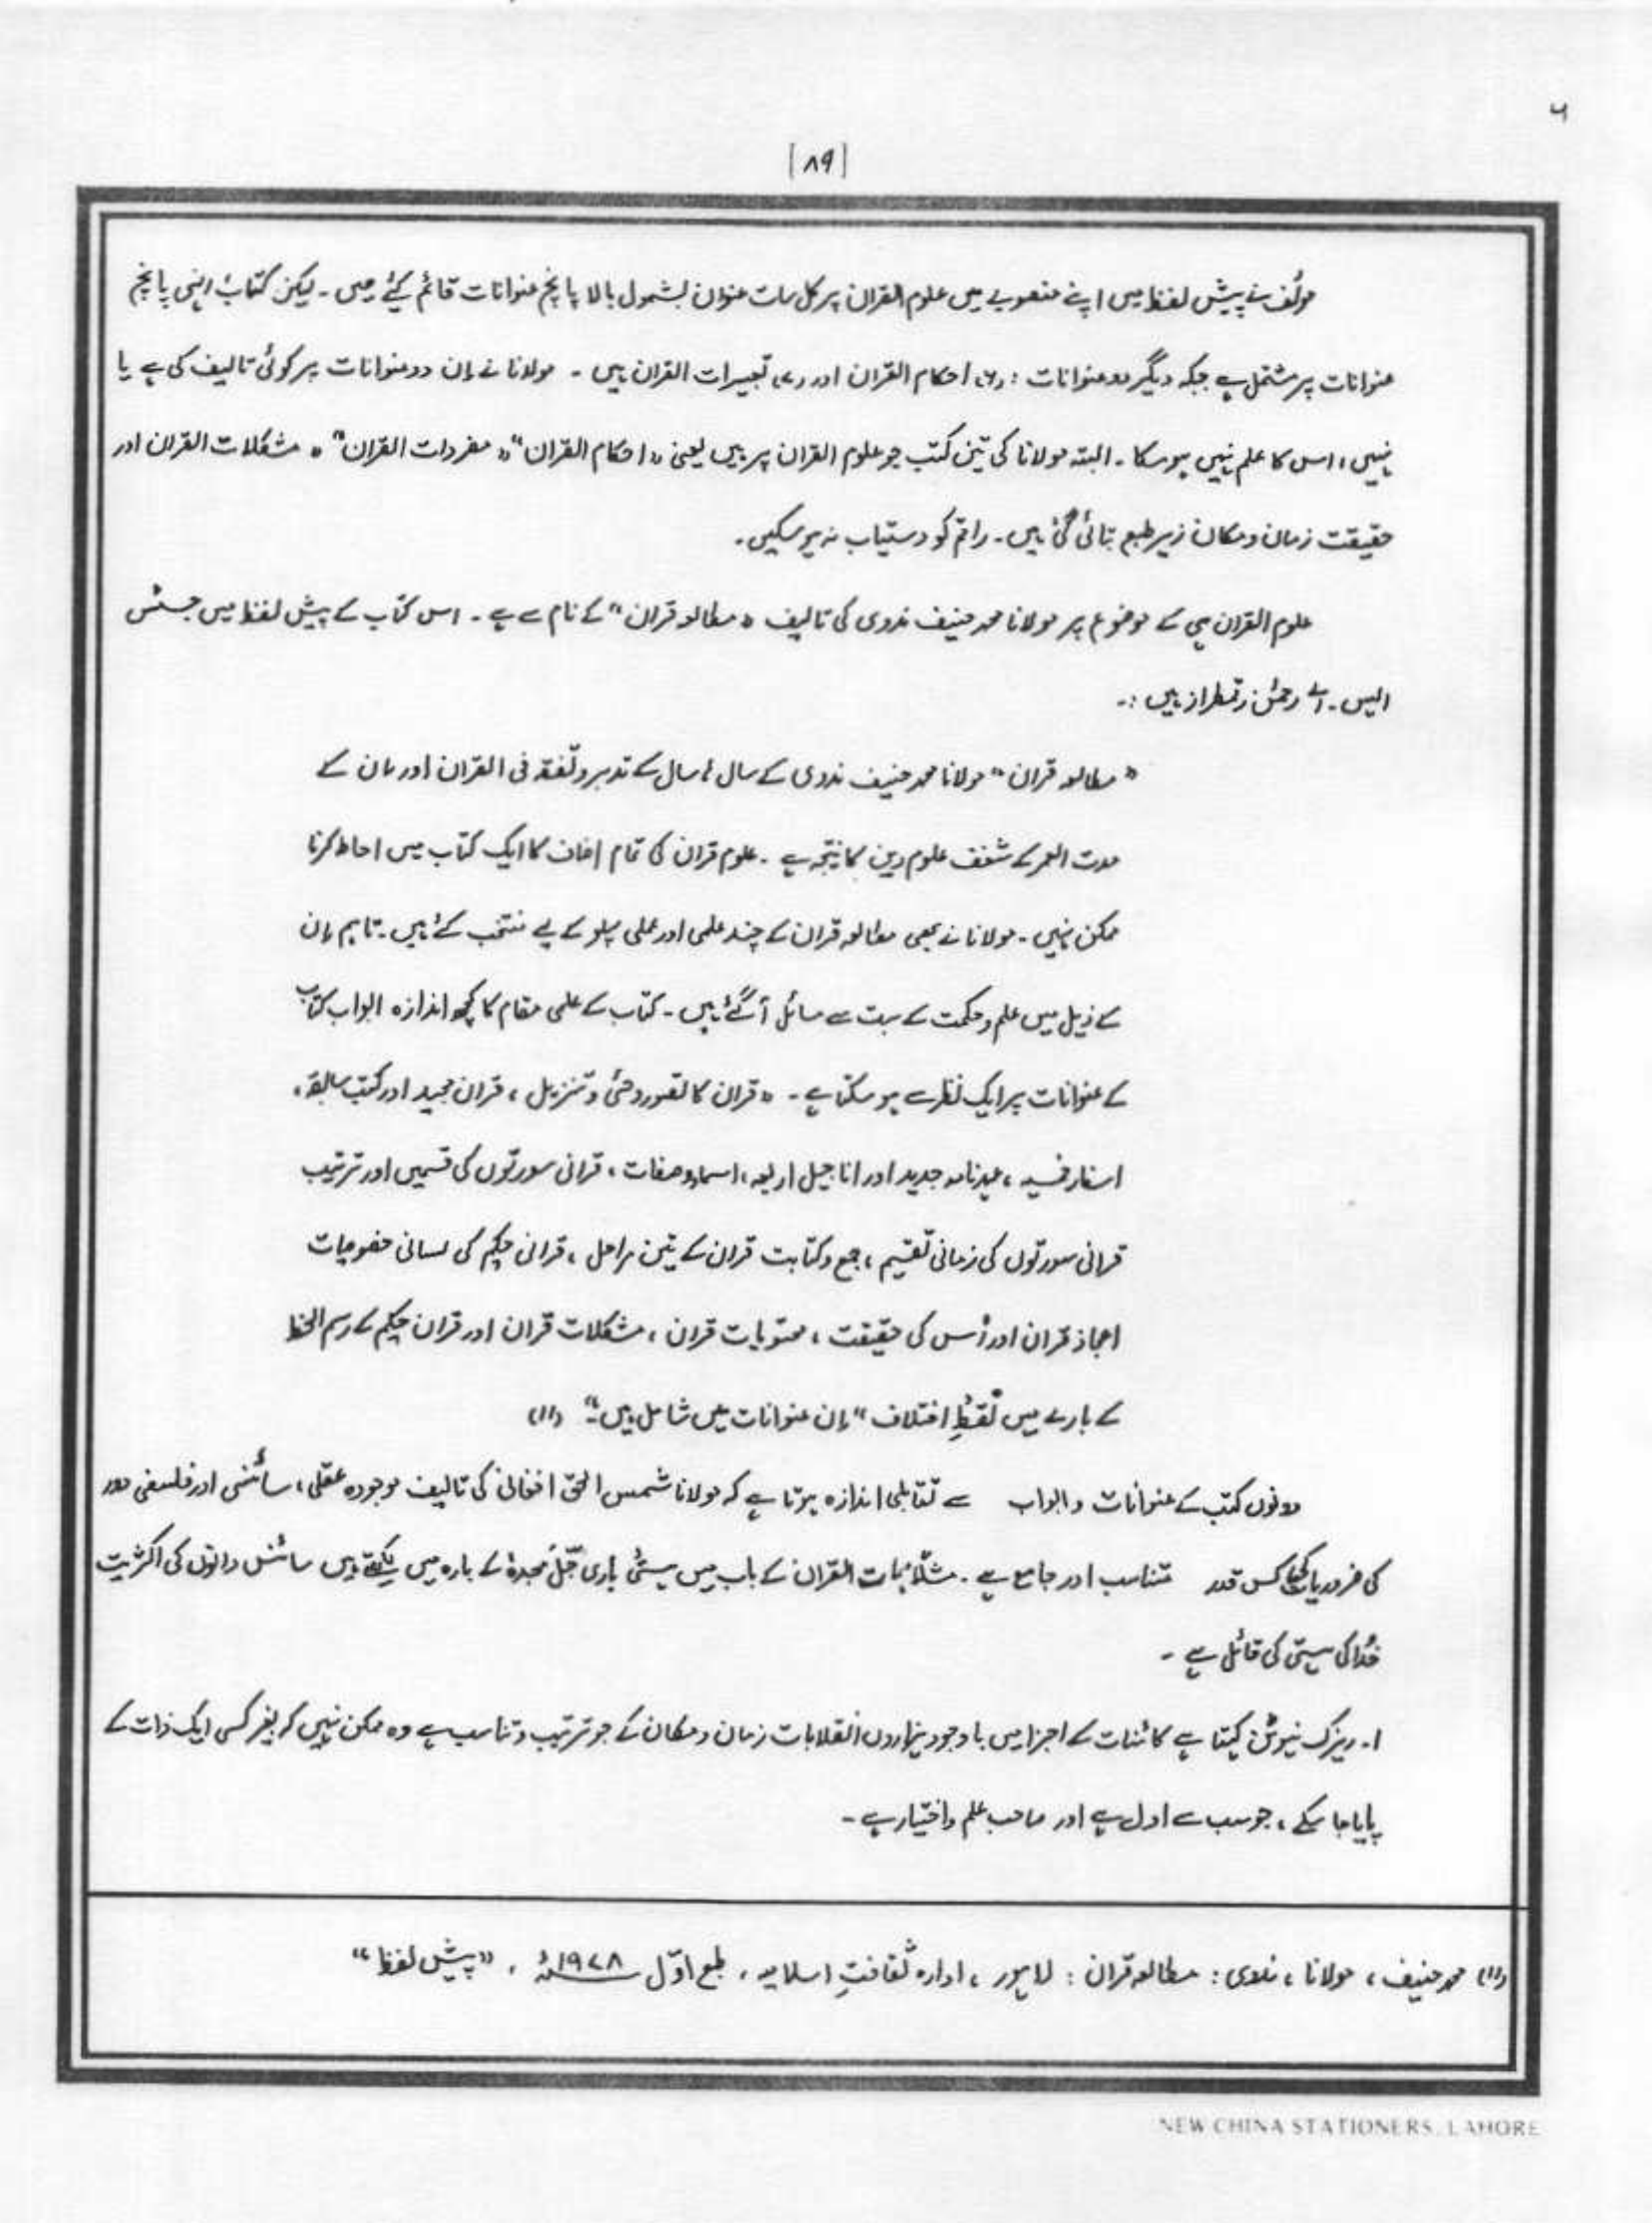 ۶
[۸۹]
مولف نے پیش لفظ میں اپنے منصوبے میں علوم القران پر کل سات عنوان بشمول بالا پانچ عنوانات قائم کیٔے ہیں ۔ لیکن کتاب انہی پانچ
عنوانات پر مشتمل ہے جبکہ دیگر دو عنوانات : (۶) احکام القران اور (۷) تعبیرات القران ہیں ۔ مولانا نے اِن دو عنوانات پر کوئی تالیف کی ہے یا
نہیں ، اس کا علم نہیں ہو سکا ۔ البتہ مولانا کی تین کتب جو علوم القران پر ہیں یعنی " احکام القران " " مفردات القران " " مشکلات القران اور
حقیقت زمان و مکان زیر طبع بتائی گئی ہیں ۔ راقم کو دستیاب نہ ہو سکیں ۔
علوم القران ہی کے موضوع پر مولانا محمد حنیف ندوی کی تالیف " مطالعہ قران " کے نام سے ہے ۔ اس کتاب کے پیش لفظ میں جسٹس
ایس ۔ اے رحمٰن رقمطراز ہیں :۔
" مطالعہ قران " مولانا محمد حنیف ندوی کے سال ہا سال کے تدبر و تفقہ فی القران اور اِن کے
مدت العمر کے شغف علوم دین کا نتیجہ ہے ۔ علوم قران کی تمام اصناف کا ایک کتاب میں احاطہ کرنا
ممکن نہیں ۔ مولانا نے بھی مطالعہ قران کے چند علمی اور عملی پہلو کے لیے منتخب کئے ہیں ۔ تاہم اِن
کے ذیل میں علم و حکمت کے بہت سے مسائل آ گئے ہیں ۔ کتاب کے علمی مقام کا کچھ اندازہ ابواب کتاب
کے عنوانات پر ایک نظر سے ہو سکتا ہے ۔ " قران کا تصور وحئ و تنزیل ، قران مجید اور کتب سابقہ ،
اسفار خمسہ ، عہد نامہ جدید اور اناجیل اربعہ ، اسماء و صفات ، قرانی سورتوں کی قسمیں اور ترتیب
قرانی سورتوں کی زمانی تقسیم ، جمع و کتابت قران کے تین مراحل ، قرانی حکیم کی لسانی خصوصیات
اعجاز قران اور اُس کی حقیقت ، محتویات قران ، مشکلات قران اور قران حکیم کے رسم الخط
کے بارے میں نقطۂِ اختلاف " اِن عنوانات میں شامل ہیں ۔" (۱۱)
دونوں کتب کے عنوانات و ابواب سے تقابلی اندازہ ہوتا ہے کہ مولانا شمس الحق افغانی کی تالیف موجودہ عقلی ، سائنسی اور فلسفی دور
کی ضروریات کس قدر متناسب اور جامع ہے ۔ مثلاً مہمات القران کے باب میں ہستئ باری جَلَّ مجدہٗ کے بارہ میں لکھتے ہیں سائنس دانوں کی اکثریت
خُدا کی ہستی کی قائل ہے ۔
۱ ۔ ریزک نیوٹن کہتا ہے کائنات کے اجزا میں باوجود ہزاروں انقلابات زمان و مکان کے جو ترتیب و تناسب ہے وہ ممکن نہیں کہ بغیر کسی ایک ذات کے
پایا جا سکے ، جو سب سے اول ہے اور صاحب علم و اختیار ہے ۔
(۱۱) محمد حنیف ، مولانا ، ندوی : مطالعہ قران : لاہور ، ادارہ ثقافتِ اسلامیہ ، طبع اوّل ۱۹۷۸ء ، " پیش لفظ "
NEW CHINA STATIONERS, LAHORE